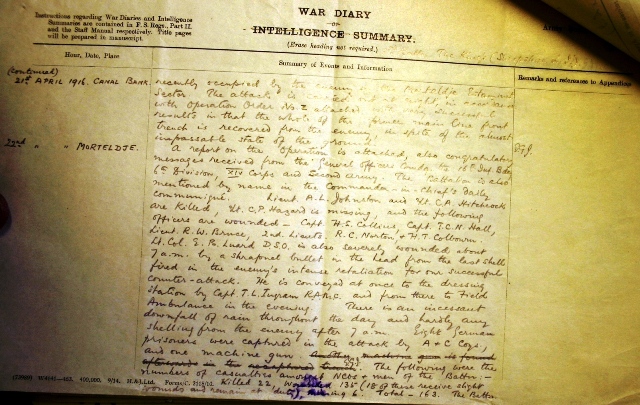 WAR DIARY
OR
INTELLIGENCE SUMMARY.
(Erase heading not required.)
Instructions regarding War Diaries and Intelligence
Summaries are contained in F. S. Regs., Part II.
and the Staff Manual respectively. Title pages
will be prepared in manuscript.
Hour, Date, Place
Summary of Events and Information
Remarks and references to Appendices
(continued)
21st APRIL 1916. CANAL BANK
recently occupied by the enemy in the
Sector. The attack is carried out at night in accordance
with Operation Order No. 2 attached
results in that the whole of the front
trench is recovered from the enemy in spite of the almost
impassable state of the ground.
22nd " " MORTELDJE.
A report on the operation is attached, also congratulatory
messages received from the General Officer Comdg. the 16th Inf. Bde,
6th Division, XIV Corps and Second Army. The Battn. is also
mentioned by name in the Commander-in-Chief's Daily
Communiqué. Lieut. A. L. Johnston and Lt. C. R. Hitchcock
are killed, Lt. C. P. Hazard is missing, and the following
officers are wounded - Capt. H. S. Collins, Capt. T. C. N. Hall,
Lieut. R. W. Bruce, 2nd Lieuts. R. C. Norton, & H. T. Colbourn
Lt. Col. E. B. Luard D.S.O. is also severely wounded about
7 a.m. by a shrapnel bullet in the head from the last shell
fired in the enemy's intense retaliation for our successful
counter-attack. He is conveyed at once to the dressing
station by Capt. T. L. Ingram R.A.M.C. and from there to Field
Ambulance in the evening. There is an incessant
downfall of rain throughout the day and hardly any
shelling from the enemy after 7 a.m. Eight German
prisoners were captured in the attack by A & C Coys,
and one machine gun. Another machine gun is found
afterwards in the recaptured trench. The following were the
numbers of casualties amongst NCOs & men of the Battn:-
Killed 22, Wounded 135 (18 of these receive slight
wounds and remain at duty), missing 6. Total - 163. The Battn.